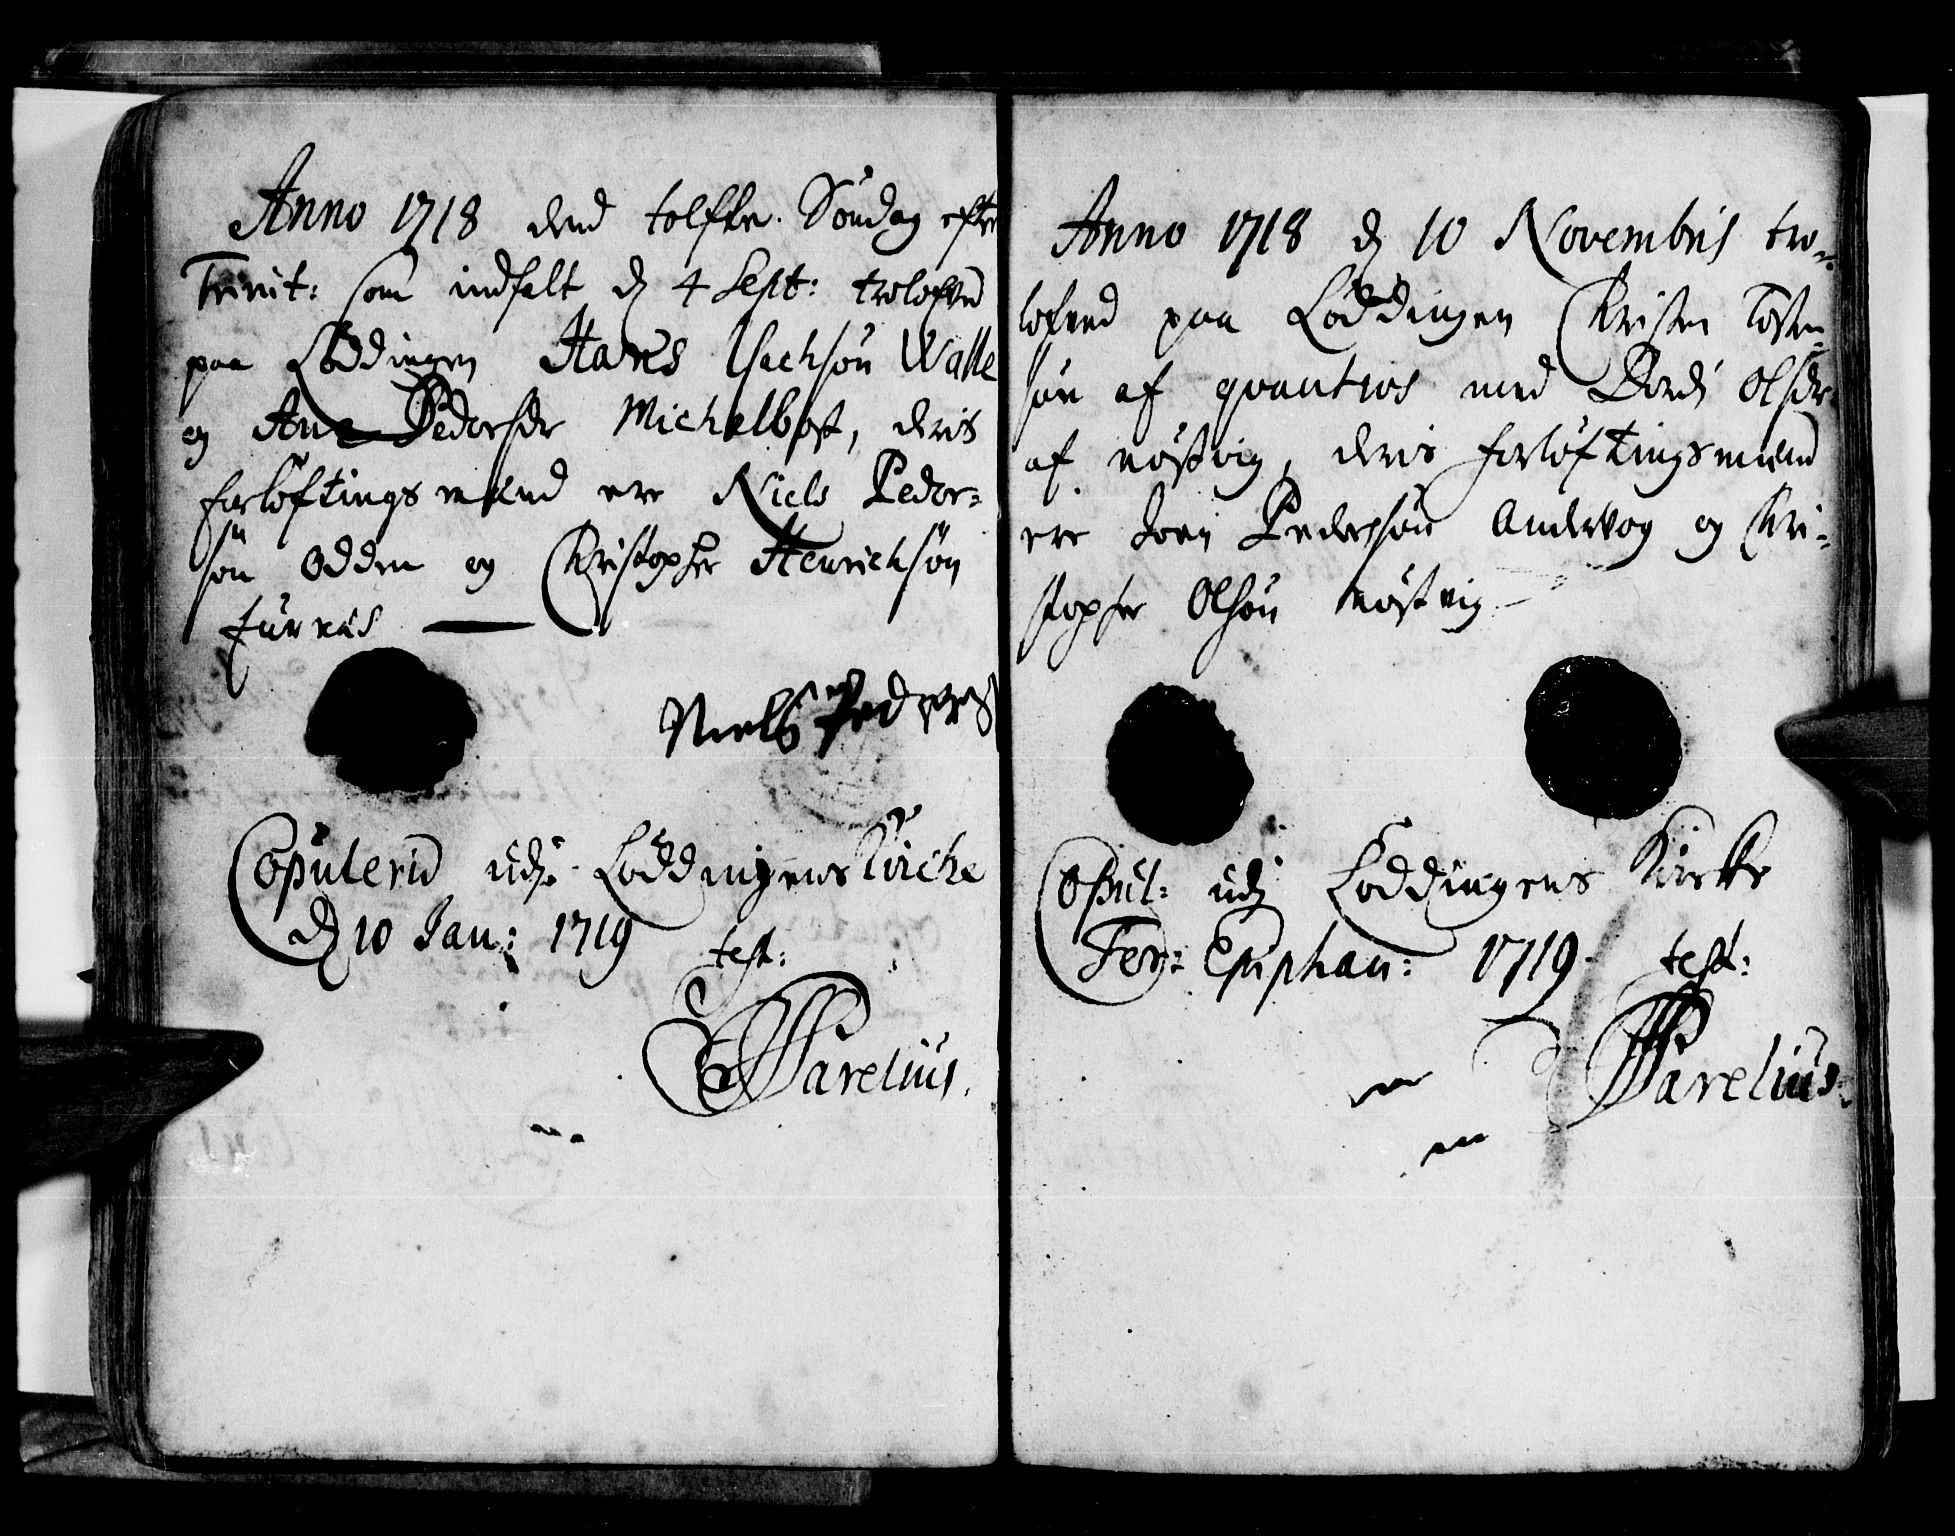 Anno 1718 dend tolfte Söndag efter
Trinit: som indfalt d 4 Sept: trolofved
paa Lödingen Hans Isachsön Walle
og Ane Pedersdr Michelbost, deris
forlöftings mænd ere Niels Peder=
sön Odden og Christopher Henrichsön
furnes
Niels Peders
Copulerid udj Löddingens Kirche
d 10 Jan: 1719
test:
Parelius.
Anno 1718 d 10 Novembris tro-
lofved paa Löddingen Christen Tosten
sön af qvantros med Olsdr
af nöstvig, deris forlöftingsmænd
ere Joen Pedersön Andervog og Chri=
stopher Olsön nöstvig
Copul: udj Löddingens Kirke
Fer: Epiphan: 1719. test:
Parelius.